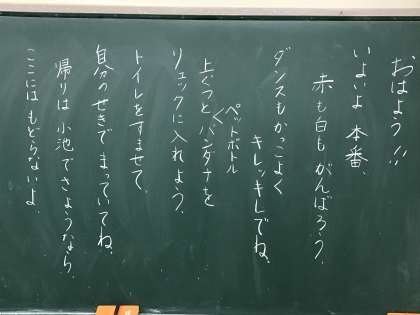 おはよう!!
いよいよ本番、
赤も白もがんばろう。
ダンスもかっこよく
キレッキレでね。
ペットボトル
上ぐつとバンダナを
リュックに入れよう。
トイレをすませて、
自分のせきでまっていてね。
帰りは小池でさようなら。
ここにはもどらないよ。